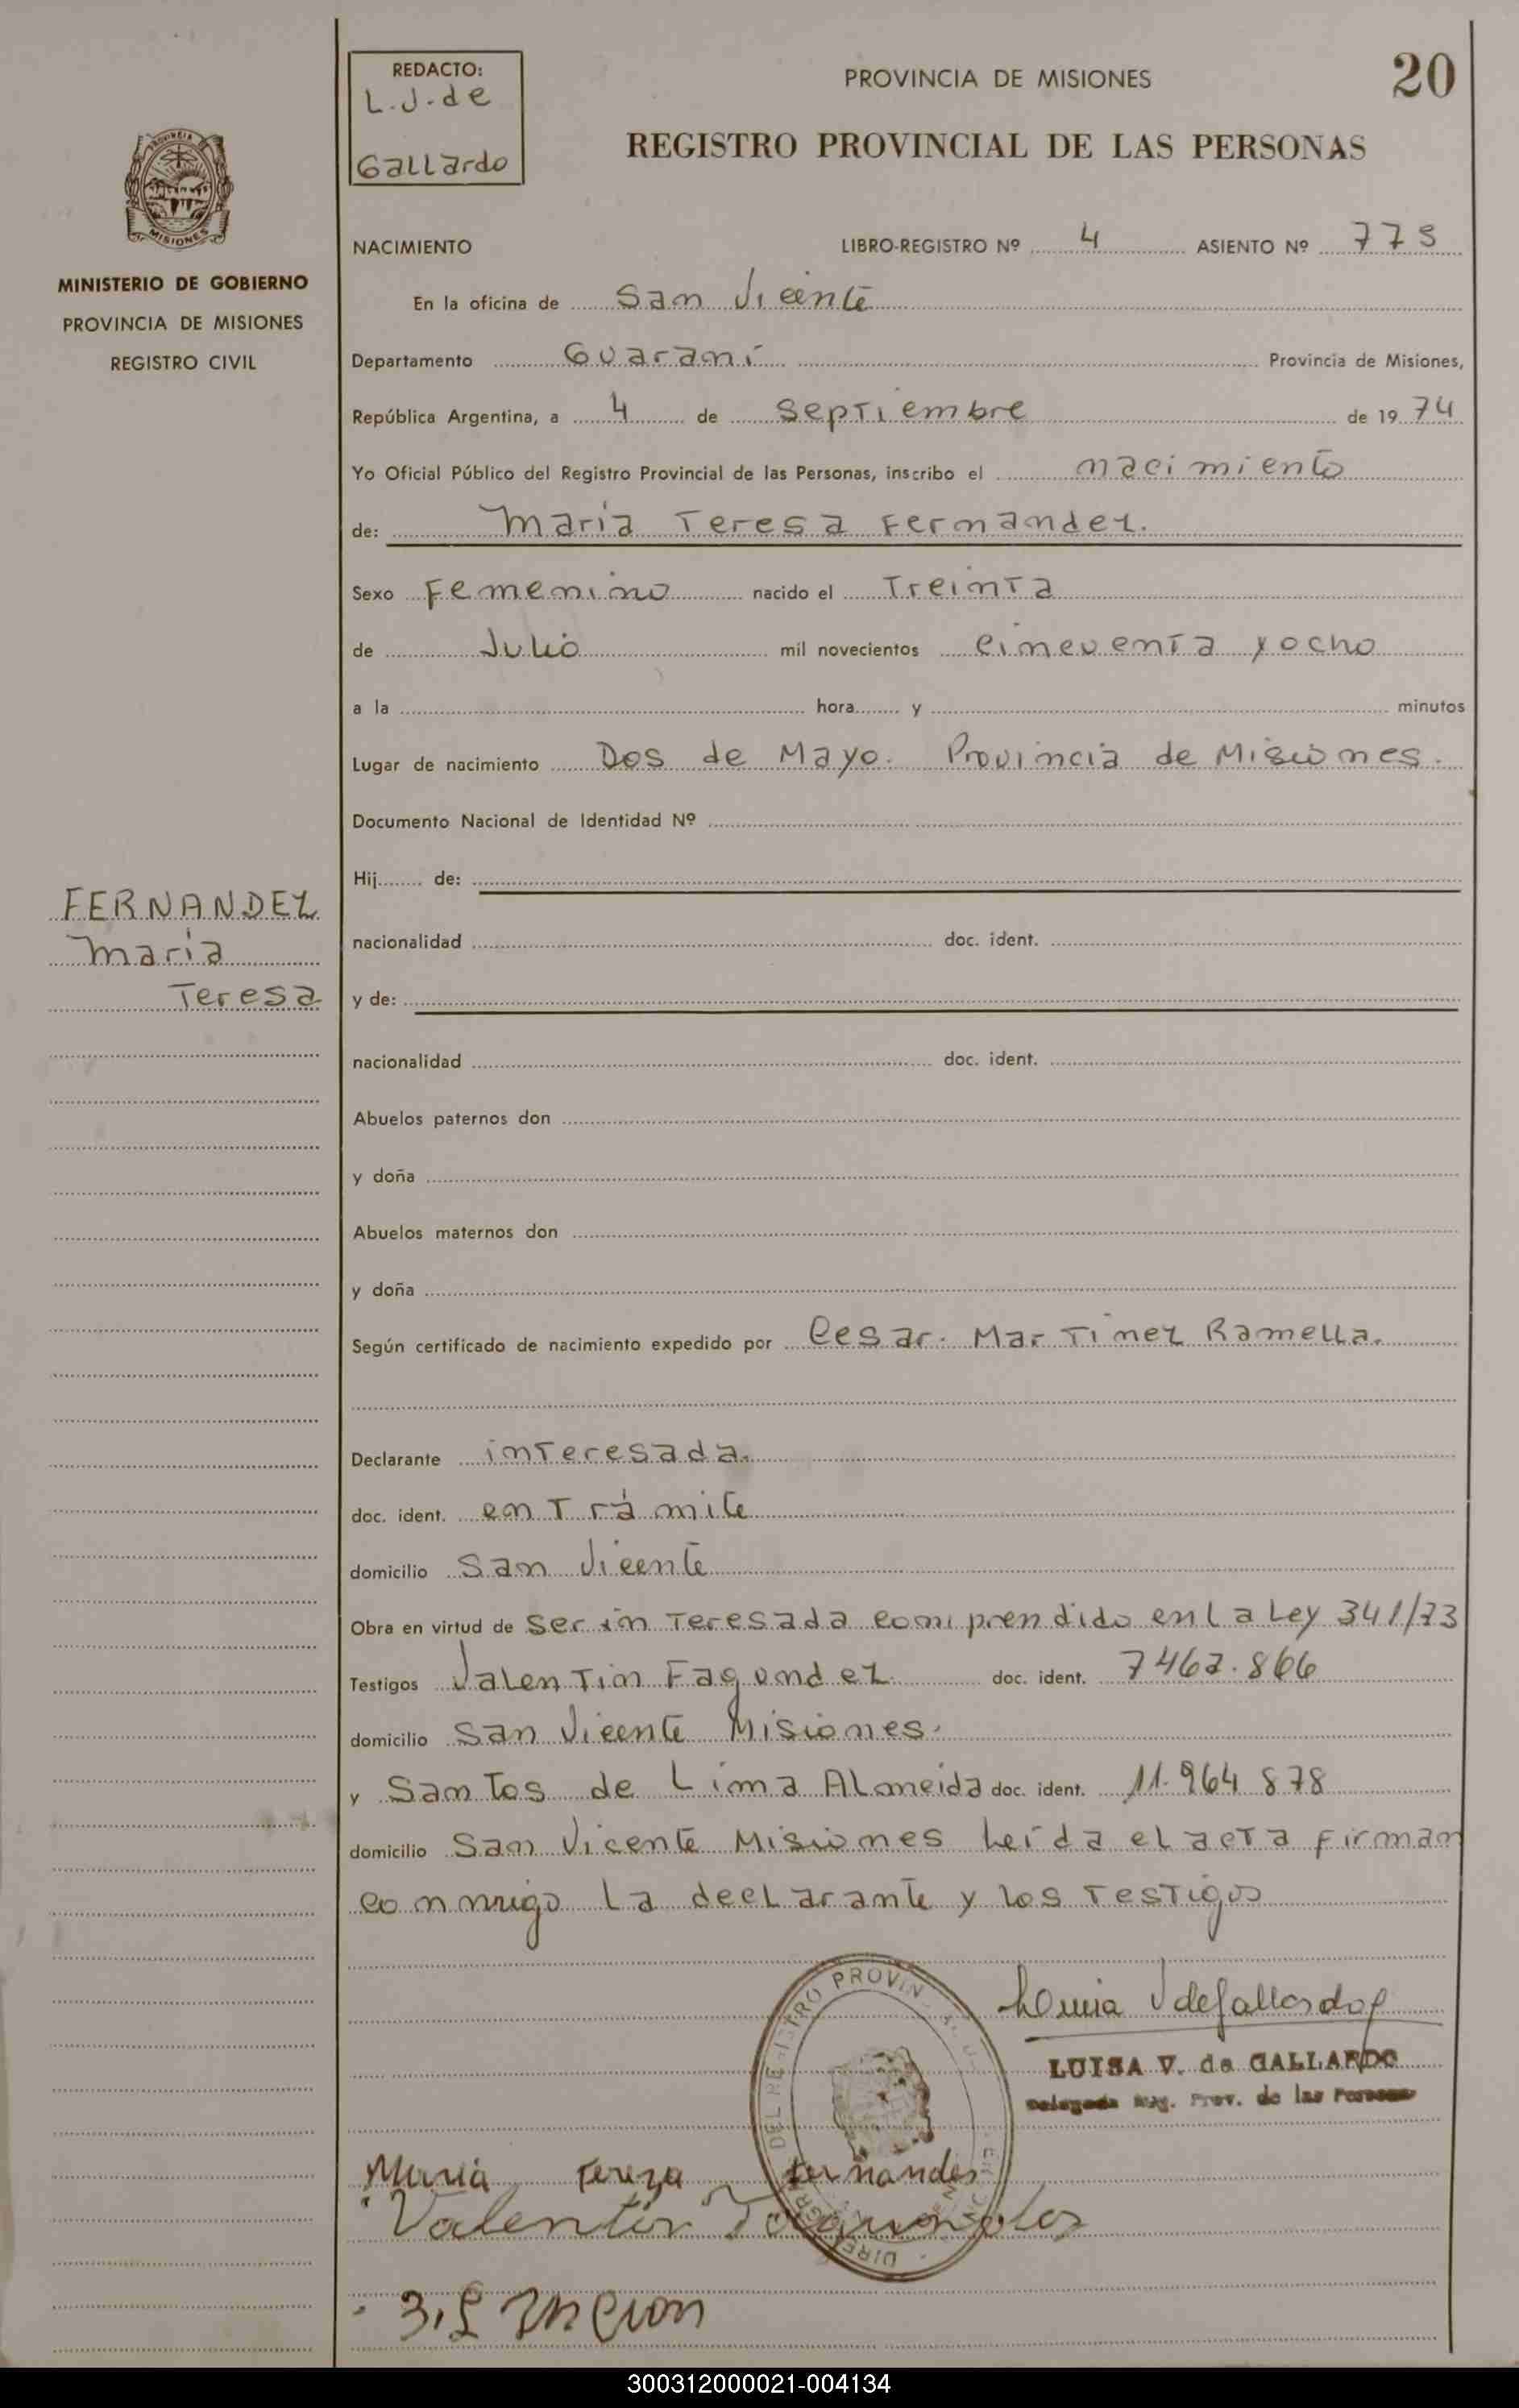 REDACTO:
L.J. de
Gallardo
PROVINCIA DE MISIONES
20
REGISTRO PROVINCIAL DE LAS PERSONAS
MISIONES
MINISTERIO DE GOBIERNO
PROVINCIA DE MISIONES
REGISTRO CIVIL
NACIMIENTO LIBRO-REGISTRO Nº 4 ASIENTO Nº 773
En la oficina de San Vicente
Departamento Guaraní Provincia de Misiones,
República Argentina, a 4 de Septiembre de 1974
Yo Oficial Público del Registro Provincial de las Personas, inscribo el nacimiento
de: Maria Teresa Fernandez.
Sexo Femenino nacido el Treinta
de Julio mil novecientos cincuenta y ocho
a la hora y minutos
Lugar de nacimiento Dos de Mayo. Provincia de Misiones.
Documento Nacional de Identidad Nº
Hij de:
FERNANDEZ
Maria
Teresa
nacionalidad doc. ident.
y de:
nacionalidad doc. ident.
Abuelos paternos don
y doña
Abuelos maternos don
y doña
Según certificado de nacimiento expedido por Cesar. Martinez Ramella.
Declarante interesada.
doc. ident. en Trámite
domicilio San Vicente
Obra en virtud de ser interesada comprendido en la Ley 341/73
Testigos Valentin Fagundez doc. ident. 7462.866
domicilio San Vicente Misiones.
y Santos de Lima Almeida doc. ident. 11.964 878
domicilio San Vicente Misiones Leída el acta firman
conmigo la declarante y los Testigos
LUISA V. de GALLARDO
Delegada Reg. Prov. de las Personas
Maria Tereza Fernandes
Valentin
300312000021-004134